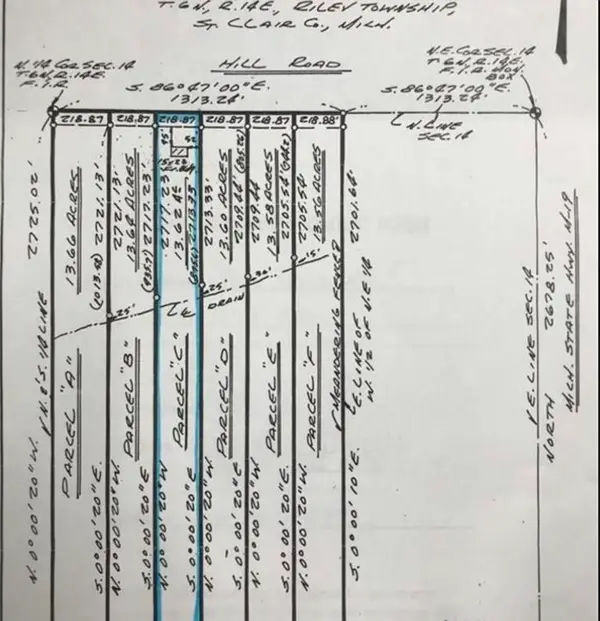 T.6N, R.14E, RILEY TOWNSHIP,
ST. CLAIR CO., MICH.
N. 1/4 COR SEC. 14
T.6N, R.14E.
F.I.R
HILL ROAD
N.E. COR SEC. 14
T.6N, R.14E.
F.I.R. MON.
BOX
S. 86°47'00"E.
1313.24'
S. 86°47'00"E.
1313.24'
218.87
218.87
218.87
218.87
218.87
218.88'
N. LINE
SEC. 14
2725.02'
13.66 ACRES
2721.13'
2721.13'
13.64 ACRES
2717.23'
2717.23'
13.62 AC
2713.33
2713.33'
13.60 ACRES
2709.44
2709.44
13.58 ACRES
2705.54'
2705.54'
13.56 ACRES
2701.64'
25'
25'
30'
15'
℄ DRAIN
N. & S. 1/4 LINE
PARCEL "A"
PARCEL "B"
PARCEL "C"
PARCEL "D"
PARCEL "E"
PARCEL "F"
MEANDERING FENCE
E. LINE OF
W. 1/2 OF N.E. 1/4
N. 0°00'20"W.
S. 0°00'20"E.
N. 0°00'20"W.
S. 0°00'20"E
N. 0°00'20"W
S. 0°00'20"E
N. 0°00'20"W
S. 0°00'20"E
N. 0°00'20"W
S. 0°00'20"E.
N. 0°00'20"W.
S. 0°00'10"E
E. LINE SEC. 14
NORTH 2678.25'
MICH. STATE HWY. M-19